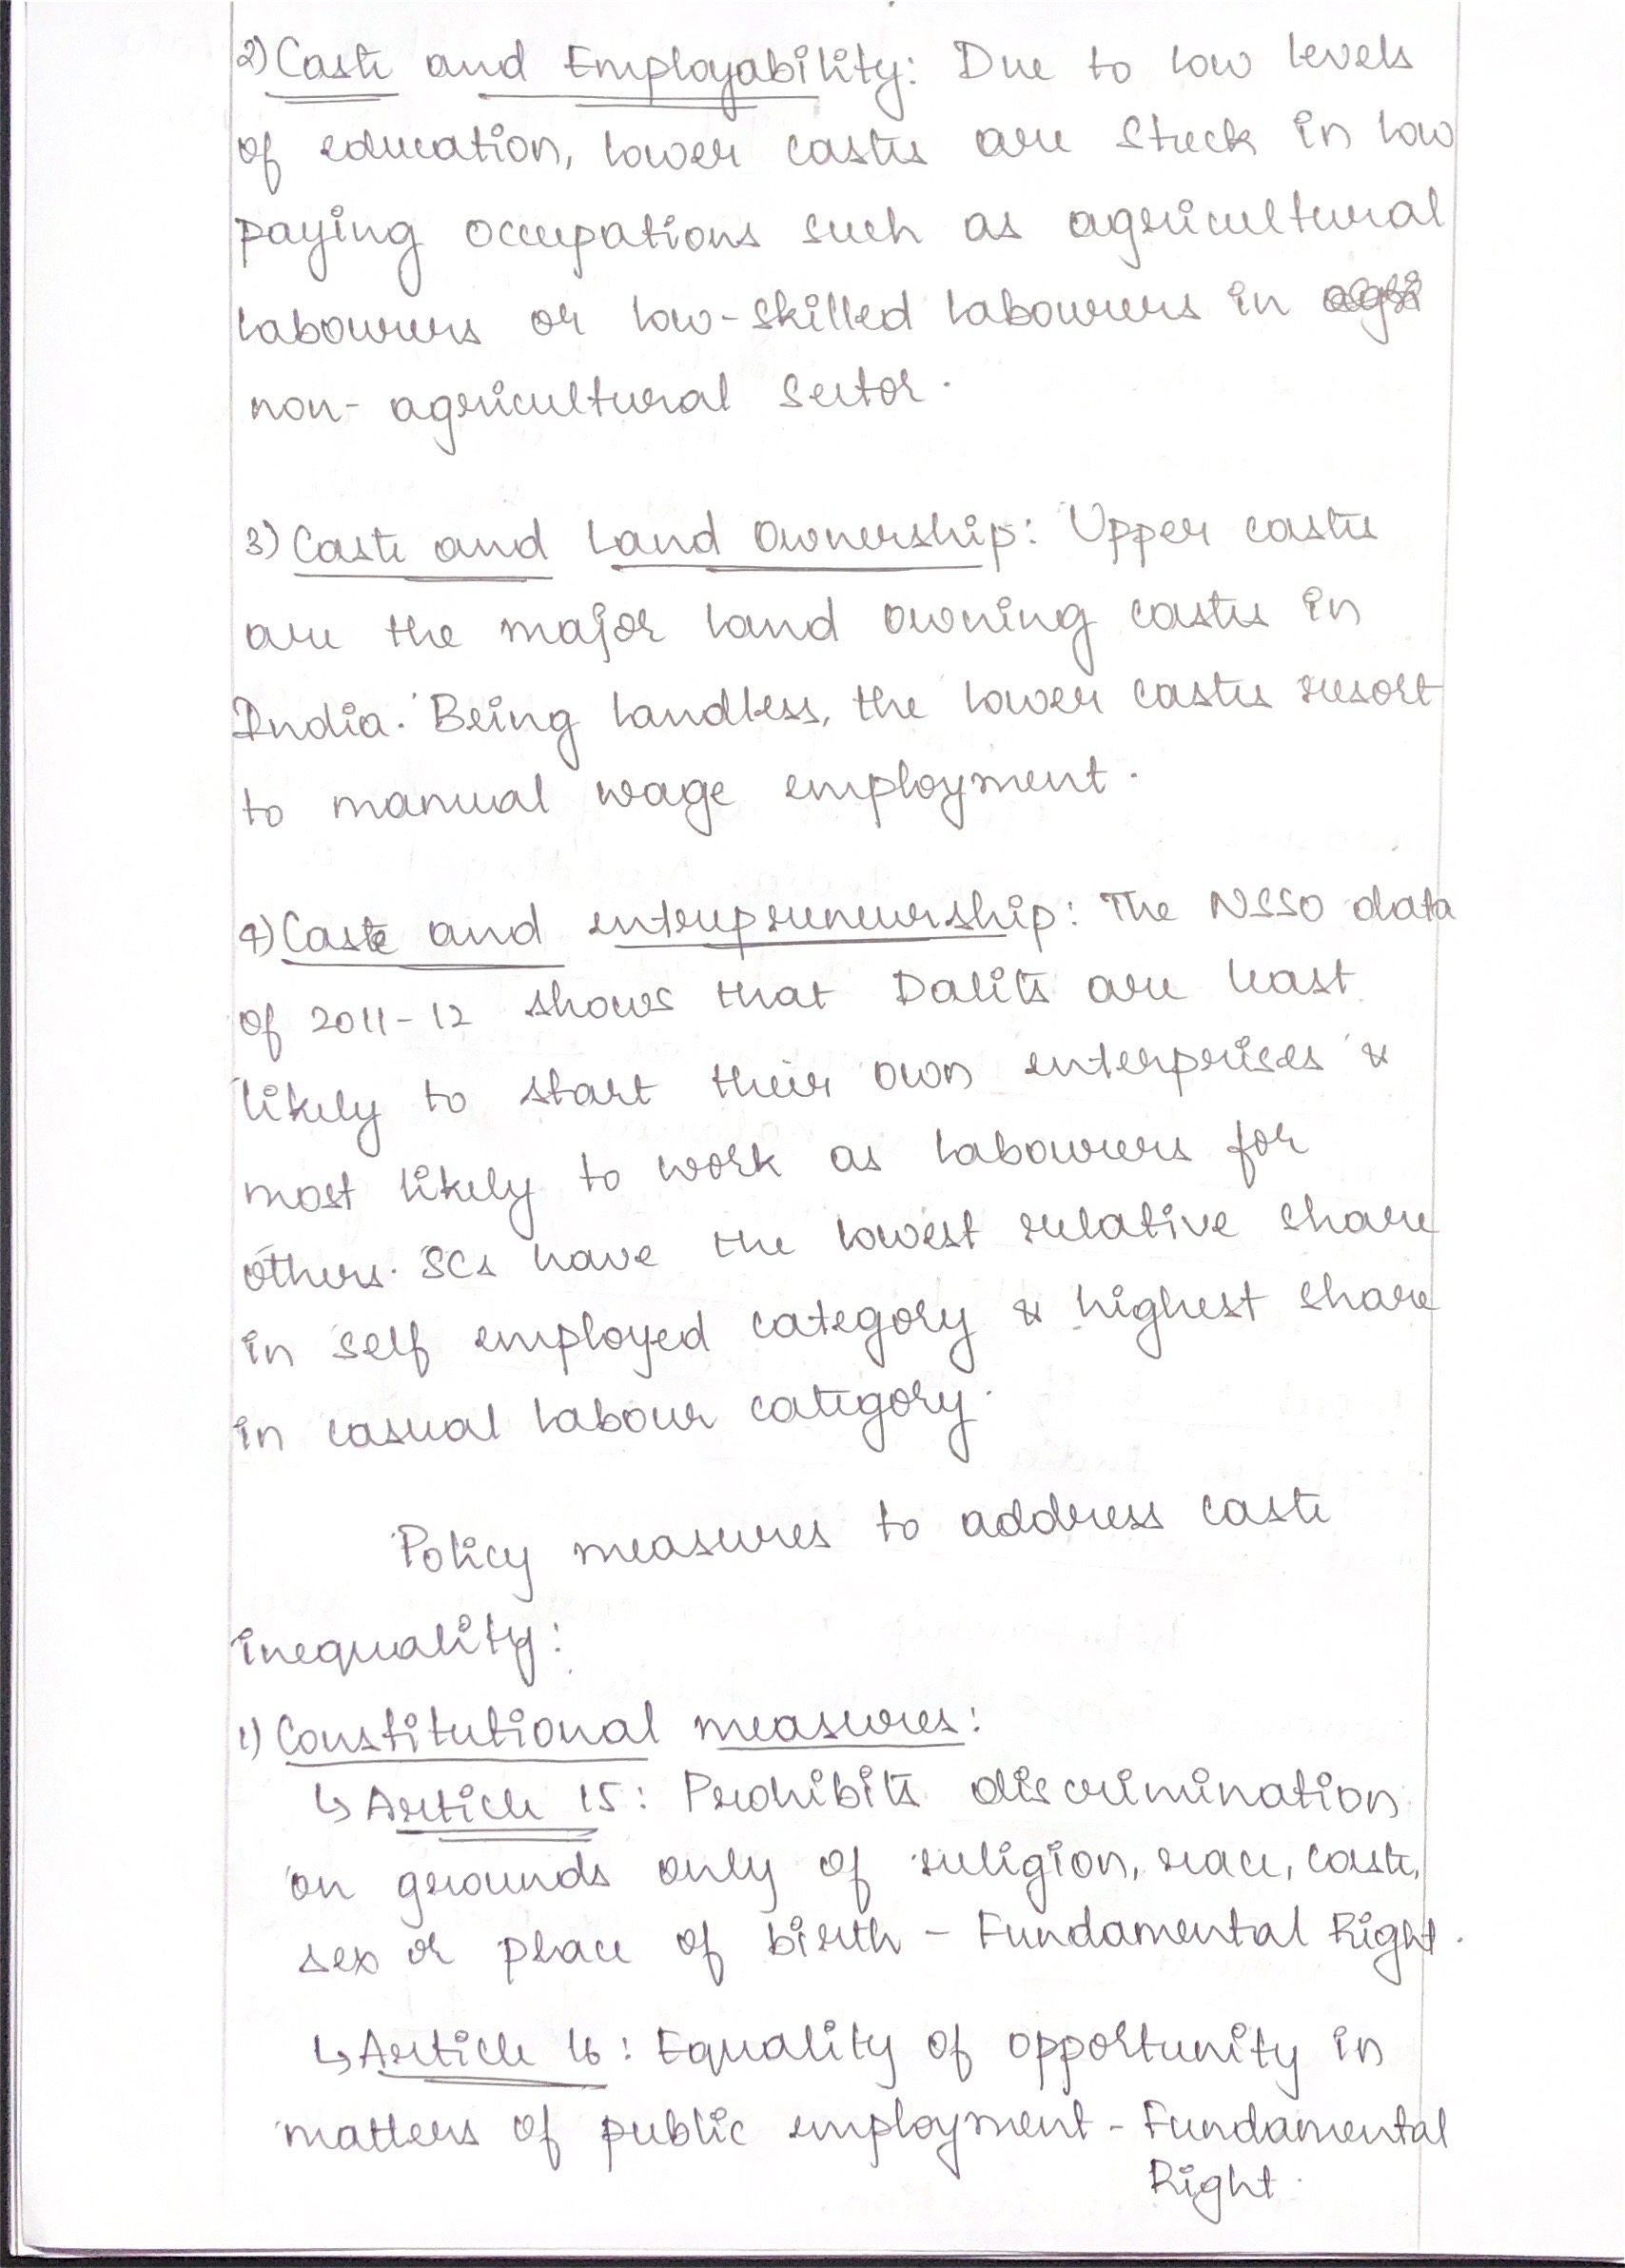 2) Caste and Employability: Due to low levels
of education, lower castes are stuck in low
paying occupations such as agricultural
labourers or low-skilled labourers in
non-agricultural sector.
3) Caste and Land Ownership: Upper castes
are the major land owning castes in
India. Being landless, the lower castes resort
to manual wage employment.
4) Caste and entrepreneurship: The NSSO data
of 2011-12 shows that Dalits are least
likely to start their own enterprises &
most likely to work as labourers for
others. SCs have the lowest relative share
in self employed category & highest share
in casual labour category.
Policy measures to address caste
inequality:
1) Constitutional measures:
↳ Article 15: Prohibits discrimination
on grounds only of religion, race, caste,
sex or place of birth - Fundamental Right.
↳ Article 16: Equality of opportunity in
matters of public employment - Fundamental
Right.